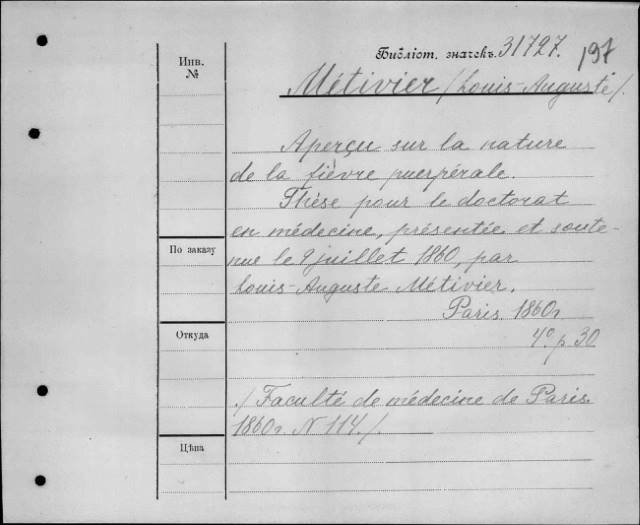 Библіот. значекъ. 31727. 197
Инв.
№
Métivier /Louis-Auguste/.
Aperçu sur la nature
de la fièvre puerpérale.
Thèse pour le doctorat
en médecine, présentée et soute-
По заказу
nue le 9 juillet 1860, par
Louis-Auguste Métivier.
Paris 1860г
Откуда
4º. p 30
/Faculté de médecine de Paris.
1860г. N 114./.
Цѣна